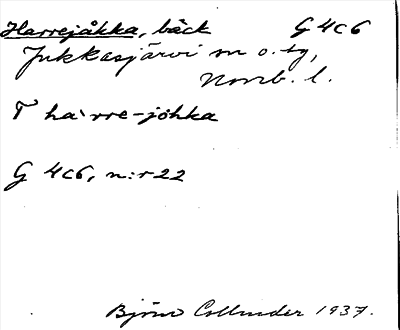 Harrejåkka, bäck G 4c6
Jukkasjärvi sn o. tg,
Norrb. l.
T ha`rre-johka
G 4c6, n:r 22
Björn Collinder 1937.